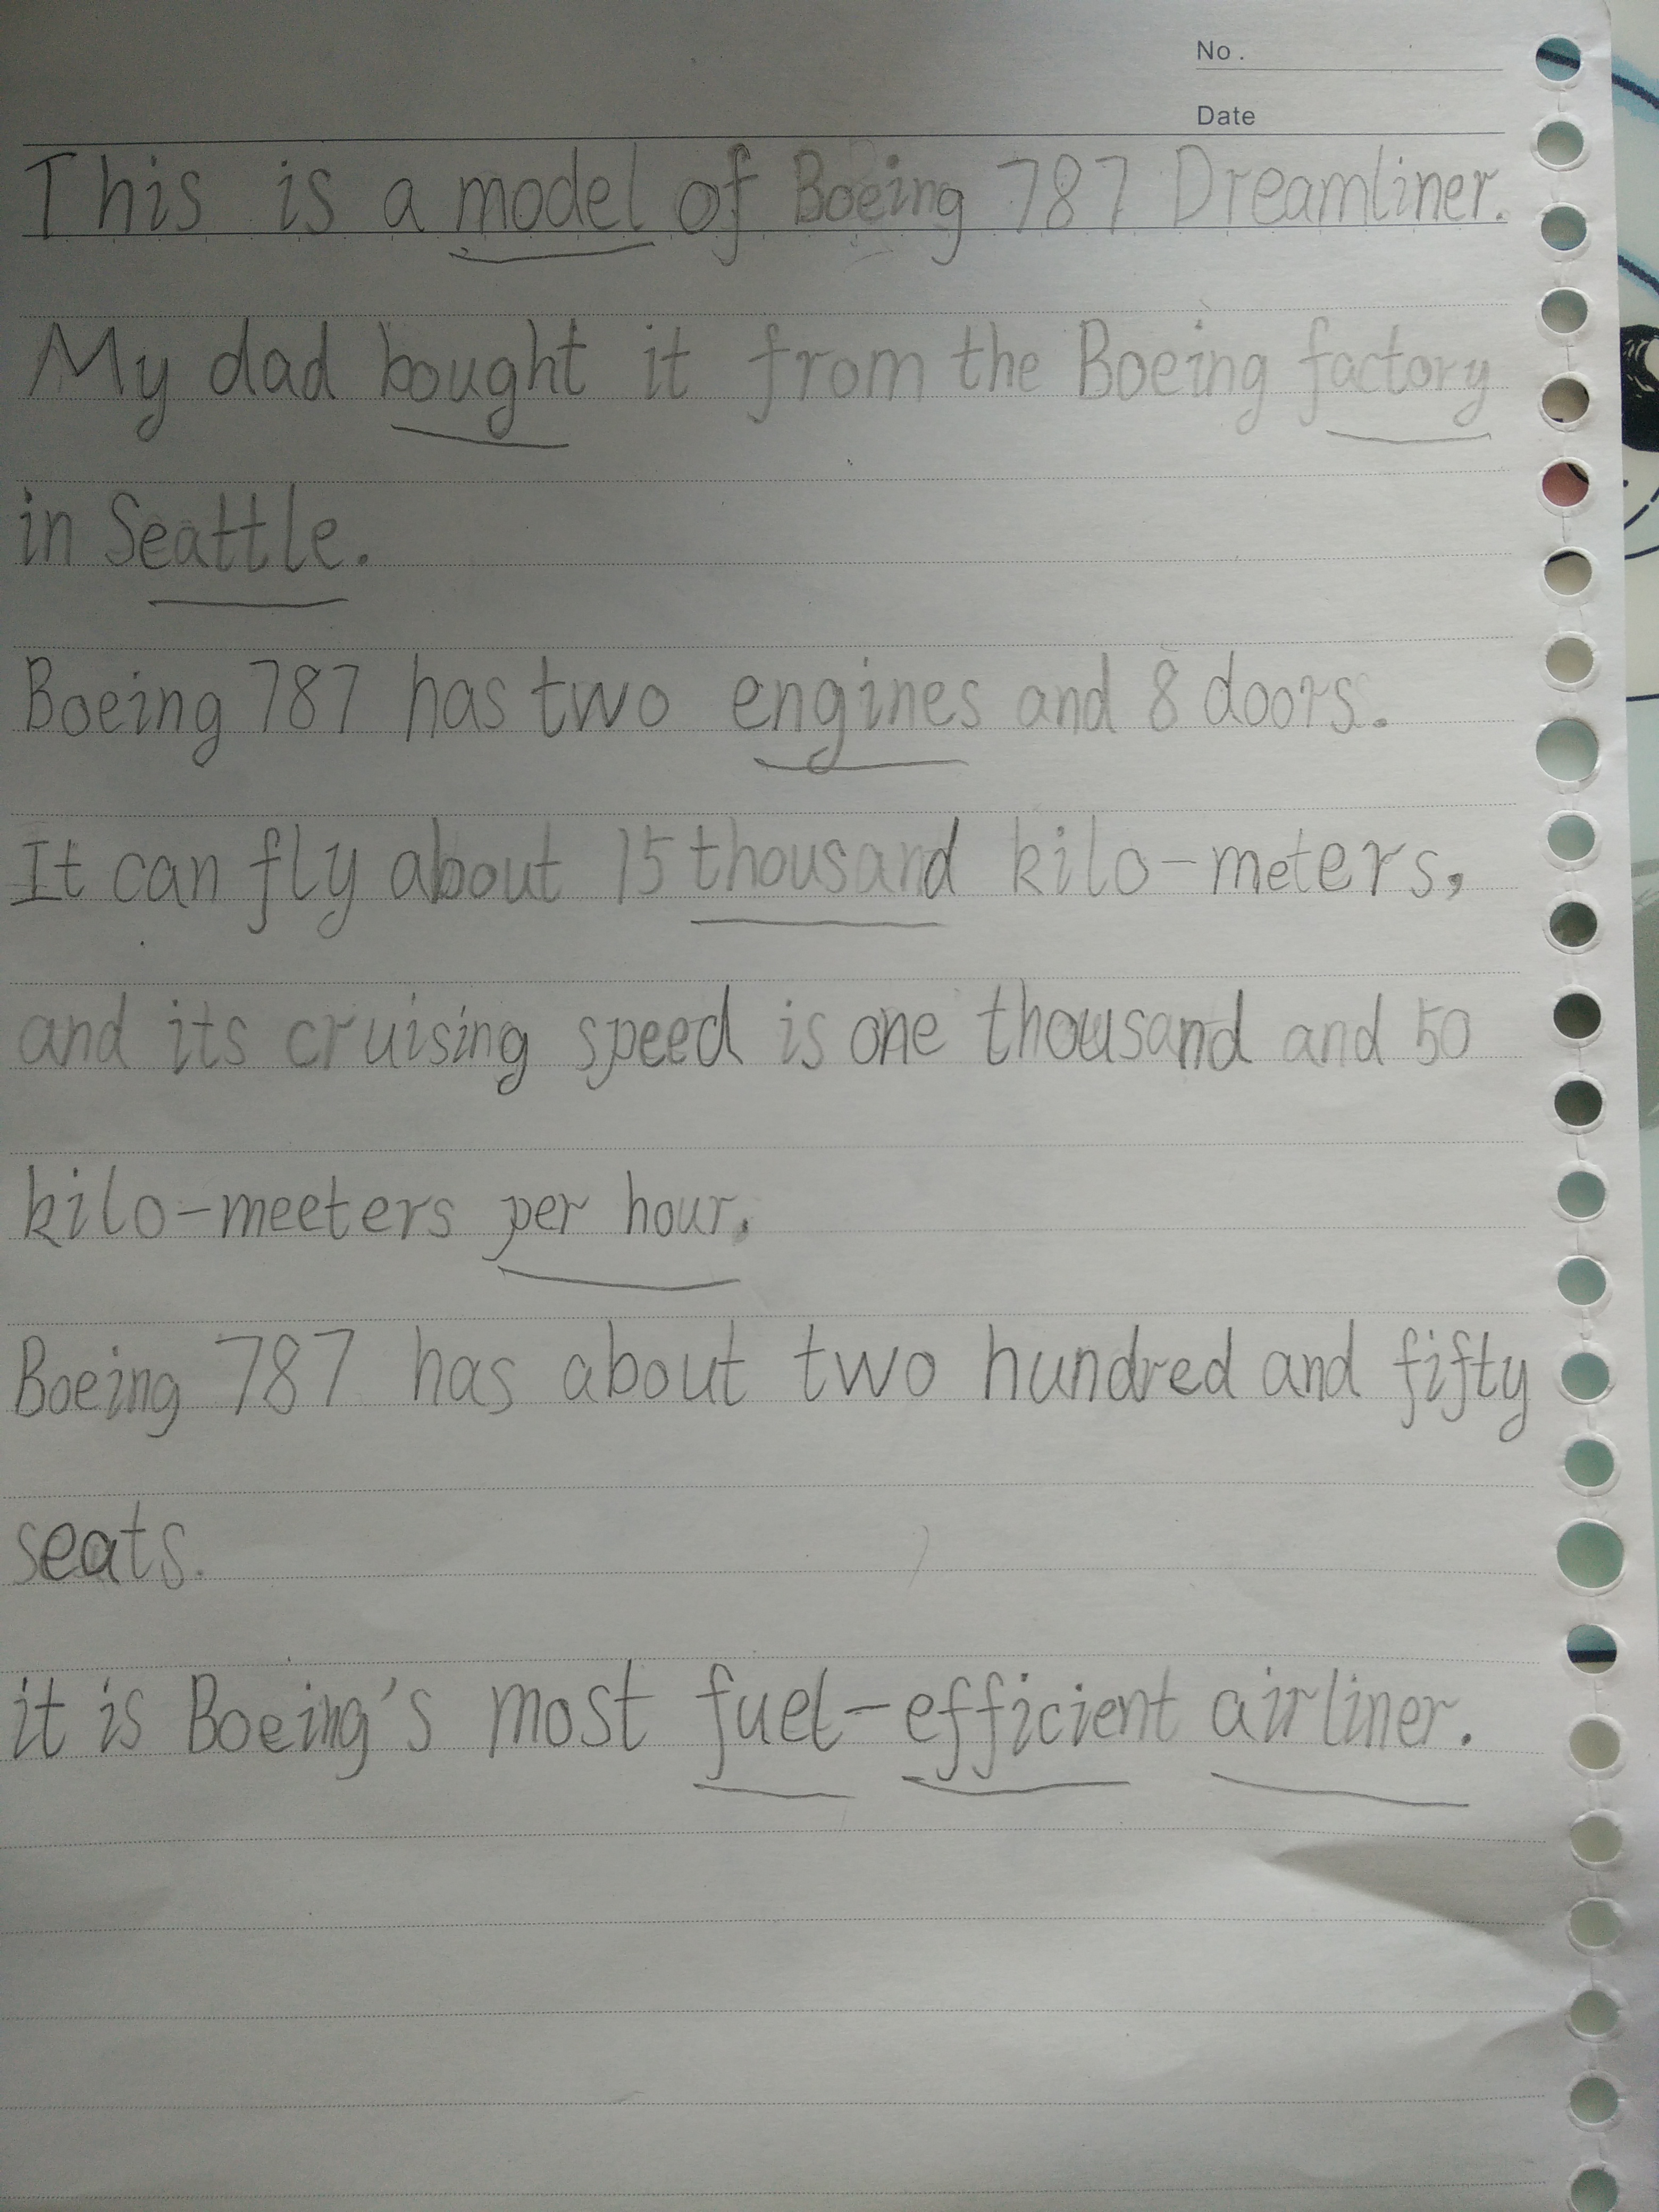 No.
Date
This is a model of Boeing 787 Dreamliner.
My dad bought it from the Boeing factory
in Seattle.
Boeing 787 has two engines and 8 doors.
It can fly about 15 thousand kilo-meters,
and its cruising speed is one thousand and 50
kilo-meeters per hour.
Boeing 787 has about two hundred and fifty
seats.
it is Boeing's most fuel-efficient airliner.